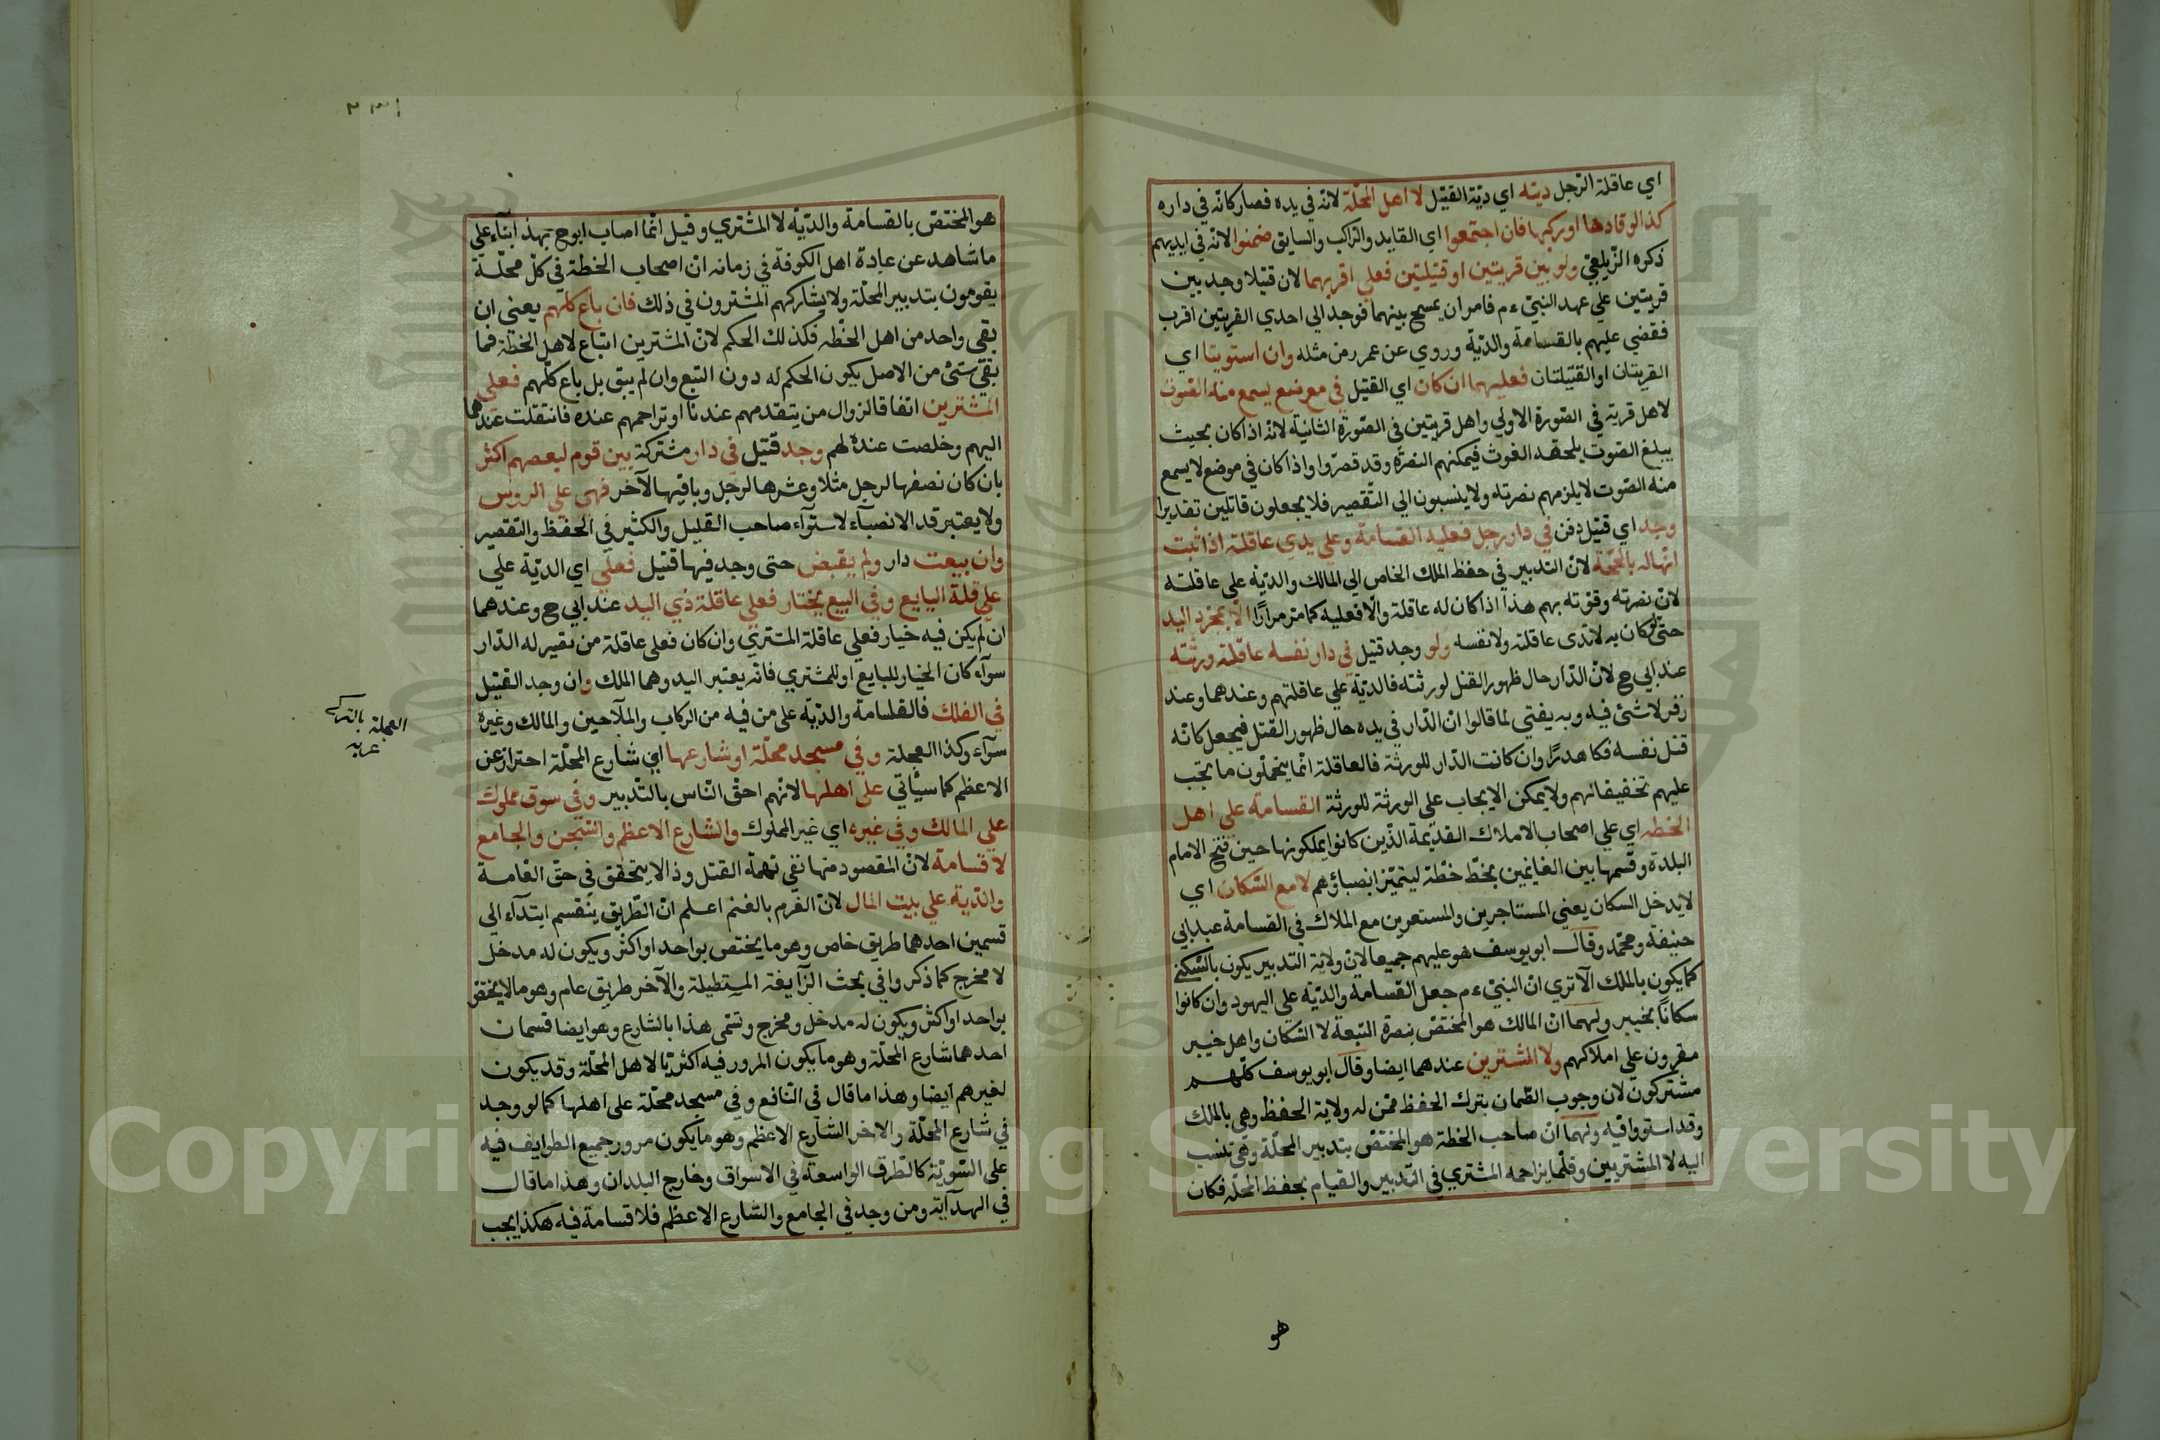 اي عاقلة الرجل ديته اي دية القتيل لا اهل المحلة لانه في يده فصار كانه في داره
كذا لو قادها او ركبها فان اجتمعوا اي القايد والراكب والسايق ضمنوا لانه في ايديهم
ذكره الزيلعي ولو بين قريتين او قتيلتين فعلي اقربهما لان قتيلا وجد بين
قريتين علي عهد النبي ءم فامر ان يمسح بينهما فوجد الي احدي القريتين اقرب
فقضي عليهم بالقسامة والدية وروي عن عمر رض مثله وان استويتا اي
القريتان او القتيلتان فعليهما ان كان اي القتيل في موضع يسمع منه الصوت
لاهل قرية في الصورة الاولي واهل قريتين في الصورة الثانية لانه اذا كان بحيث
يبلغ الصوت يلحقه الغوث فيمكنهم النصرة وقد قصروا واذا كان في موضع لا يسمع
منه الصوت لا يلزمهم نصرته ولا ينسبون الي التقصير فلا يجعلون قاتلين تقديرا
وجد اي قتيل دفن في دار رجل فعليه القسامة وعلي يدي عاقلة اذا ثبت
انها له بالحجة لان التدبير في حفظ الملك الخاص الي المالك والدية علي عاقلته
لان نصرته وقوته بهم هذا اذا كان له عاقلة والا فعليه كما مر مرارا الا بمجرد اليد
حتي لو كان به لا تدى عاقلته ولا نفسه ولو وجد قتيل في دار نفسه عاقلة ورثته
عند ابي ح لان الدار حال ظهور القتل لورثته فالدية علي عاقلتهم وعندهما وعند
زفر لا شئ فيه وبه يفتي لما قالوا ان الدار في يده حال ظهور القتل فيجعل كانه
قتل نفسه فكا هدرا وان كانت الدار للورثة فالعاقلة انما يتحملون ما يجب
عليهم تخفيفا لهم ولا يمكن الايجاب علي الورثة للورثة القسامة علي اهل
الخطه اي علي اصحاب الاملاك القديمة الذين كانوا يملكونها حين فتح الامام
البلدة وقسمها بين الغانمين بخط خطة ليتميز انصباؤهم لا مع السكان اي
لا يدخل السكان يعني المستاجرين والمستعيرين مع الملاك في القسامة عند ابي
حنيفة ومحمد وقال ابو يوسف هو عليهم جميعا لان ولاية التدبير يكون بالسكني
كما يكون بالملك الا تري ان النبي ءم جعل القسامة والدية علي اليهود وان كانوا
سكانا بخيبر ولهما ان المالك هو المختص بنصرة التبعة لا السكان واهل خيبر
مقرون علي املاكهم ولا المشترين عندهما ايضا وقال ابو يوسف كلهم
مشتركون لان وجوب الضمان بترك الحفظ ممن له ولاية الحفظ وهي بالملك
وقد استووا فيه ولهما ان صاحب الخطة هو المختص بتدبير المحلة وهي تنسب
اليه لا المشتريين وقلما يزاحمه المشتري في التدبير والقيام بحفظ المحلة فكان
هو
٢٣١
هو المختص بالقسامة والدية لا المشتري وقيل انما اصاب ابو ح بهذا بناء علي
ما شاهد عن عادة اهل الكوفة في زمانه ان اصحاب الخطة في كل محلة
يقومون بتدبير المحلة ولا يشاركهم المشترون في ذلك فان باع كلهم يعني ان
بقي واحد من اهل الخطه فكذلك الحكم لان المشترين اتباع لاهل الخطة فما
بقي شئ من الاصل يكون الحكم له دون التبع وان لم يبق بل باع كلهم فعلي
المشترين اتفاقا لزوال من يتقدمهم عندنا او تراحمهم عنده فانتقلت عندهما
اليهم وخلصت عنده لهم وجد قتيل في دار مشتركة بين قوم لبعضهم اكثر
بان كان نصفها لرجل مثلا وعشرها لرجل وباقيها لآخر فهي علي الروس
ولا يعتبر قد الانصباء لاستواء صاحب القليل والكثير في الحفظ والتقصير
وان بيعت دار ولم يقبض حتى وجد فيها قتيل فعلي اي الدية علي
علي قلة البايع وفي البيع بختار فعلي عاقلة ذي اليد عند ابي ح وعندهما
ان لم يكن فيه خيار فعلي عاقلة المشتري وان كان فعلى عاقلة من تقير له الدار
سواء كان الخيار للبايع او للمشتري فانه يعتبر اليد وهما الملك وان وجد القتيل
في الفلك فالقلسامة والدية على من فيه من الركاب والملاحين والمالك وغيره
سواء وكذا العجلة وفي مسجد محلة او شارعها اي شارع المحلة احتراز عن
الاعظم كما سيأتي على اهلها لانهم احق الناس بالتدبير وفي سوق مملوك
علي المالك وفي غيره اي غير المملوك والشارع الاعظم والسجن والجامع
لا قسامة لان المقصود منها نفي تهمة القتل وذا لا يتحقق في حق العامة
والدية علي بيت المال لان الغرم بالغنم اعلم ان الطريق ينقسم ابتداء الى
قسمين احدهما طريق خاص وهو ما يختص بواحد او اكثر ويكون له مدخل
لا مخرج كما ذكروا في بحث الزايغة المستطيلة والآخر طريق عام وهو ما لا يختص
بواحد او اكثر ويكون له مدخل ومخرج وتسمى هذا بالشارع وهو ايضا قسمان
احدهما شارع المحلة وهو ما يكون المرور فيه اكثريا لاهل المحلة وقد يكون
لغيرهم ايضا وهذا ما قال في النافع وفي مسجد محلة على اهلها كما لو وجد
في شارع المحلة والاخر الشارع الاعظم وهو ما يكون مرور جميع الطوايف فيه
على السوية كالطرق الواسعة في الاسواق وخارج البلدان وهذا ما قال
في الهداية ومن وجد في الجامع والشارع الاعظم فلا قسامة فيه هكذا يجب
العجلة بالتركي
عربه
Copyright © King Saud University